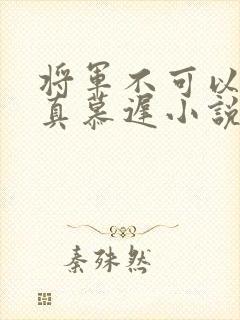 将军不可以
真慕遲小說
秦殊然